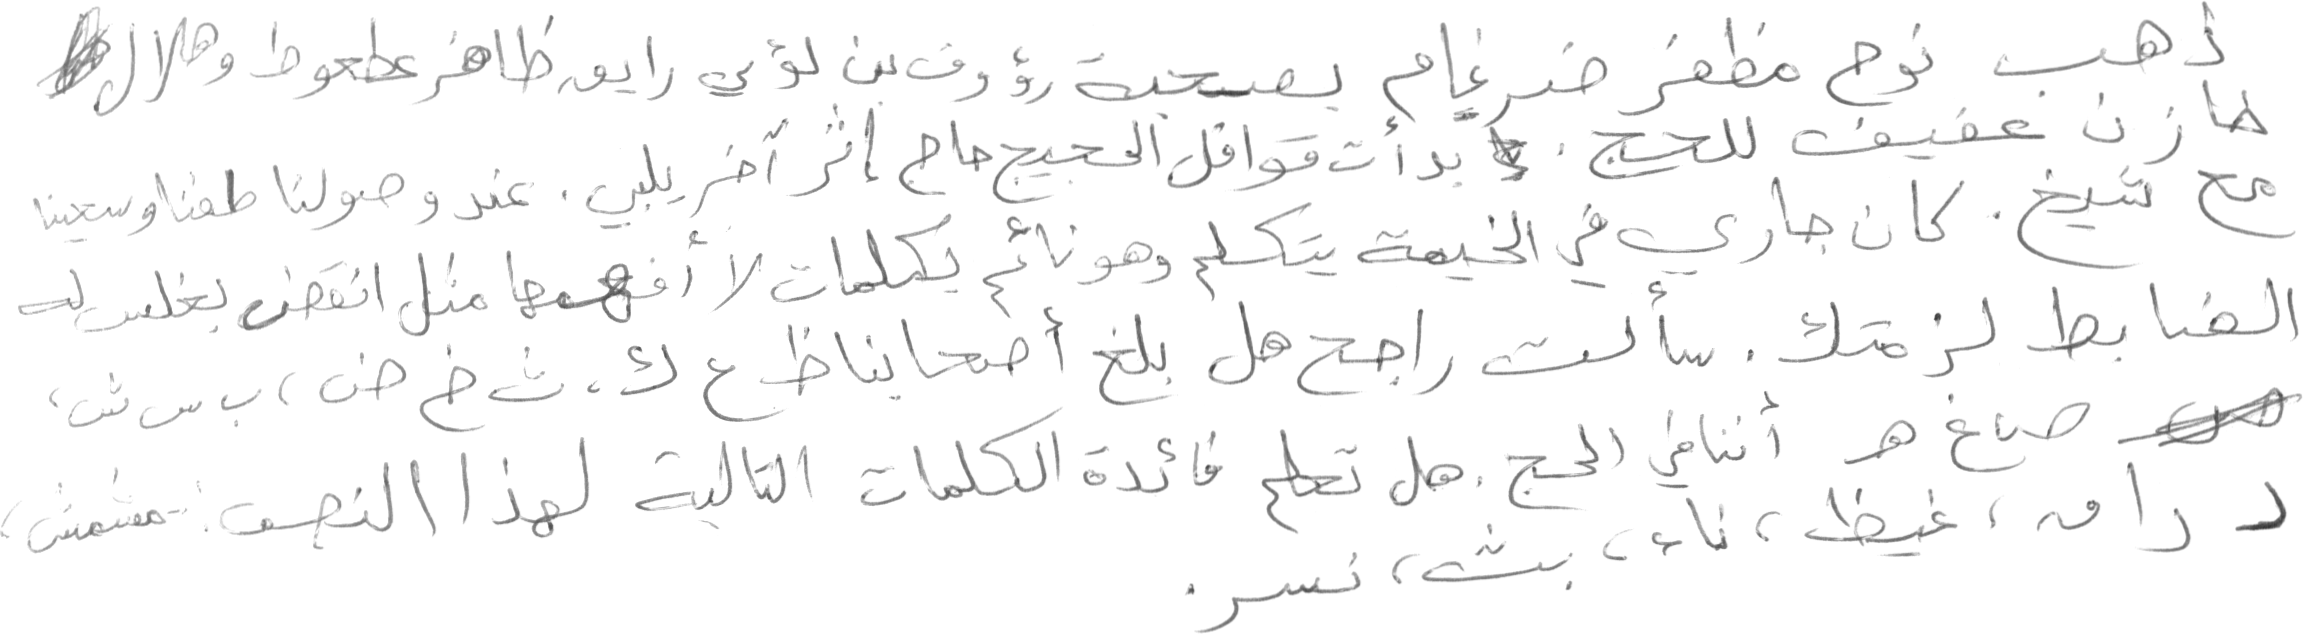 ذهب نوح مظفر ضرغام بصحبة رؤوف بن لؤي رايق ظافر عطعوط وهلال
خازن عفيف للحج. بدأت قوافل الحجيج حاج إثر آخر يلبي. عند وصولنا طفنا وسعينا
مع شيخ. كان جاري في الخيمة يتكلم وهو نائم بكلمات لا أفهمها مثل انقض بغلس له
الضابط لزمتك. سألت راجح هل بلغ أصحابنا ظ ع ك، ث خ ض، ب س ش،
ص غ هـ أننا في الحج. هل تعلم فائدة الكلمات التالية لهذا النص: مشمش،
دراق، غيظ، ناء، بث، نسر.